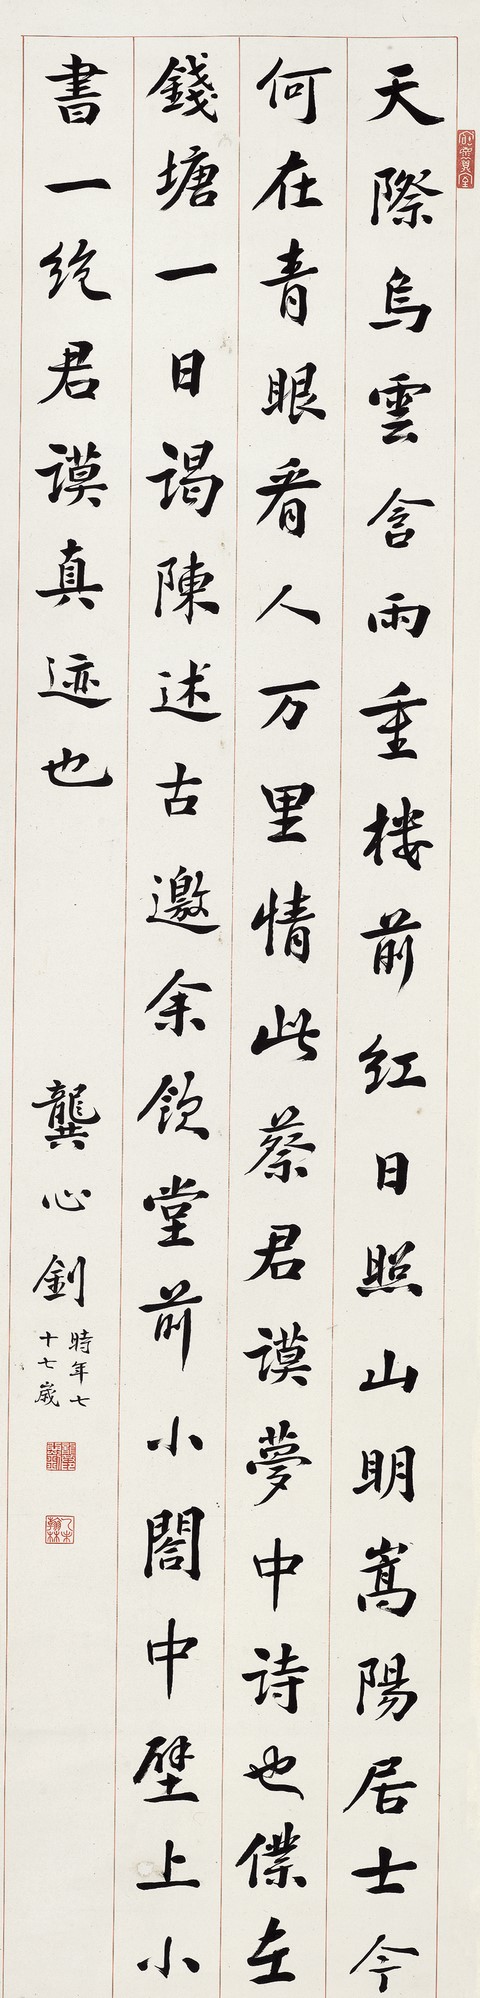 天際烏雲含雨重樓前紅日照山明嵩陽居士今
何在青眼看人万里情此蔡君謨夢中詩也僕在
錢塘一日謁陳述古邀余飲堂前小閣中壁上小
書一絶君謨真迹也
龔心釗
時年七
十七歲
乙未
翰林